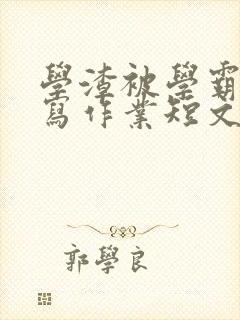 學渣被學霸
寫作業短文
郭學良